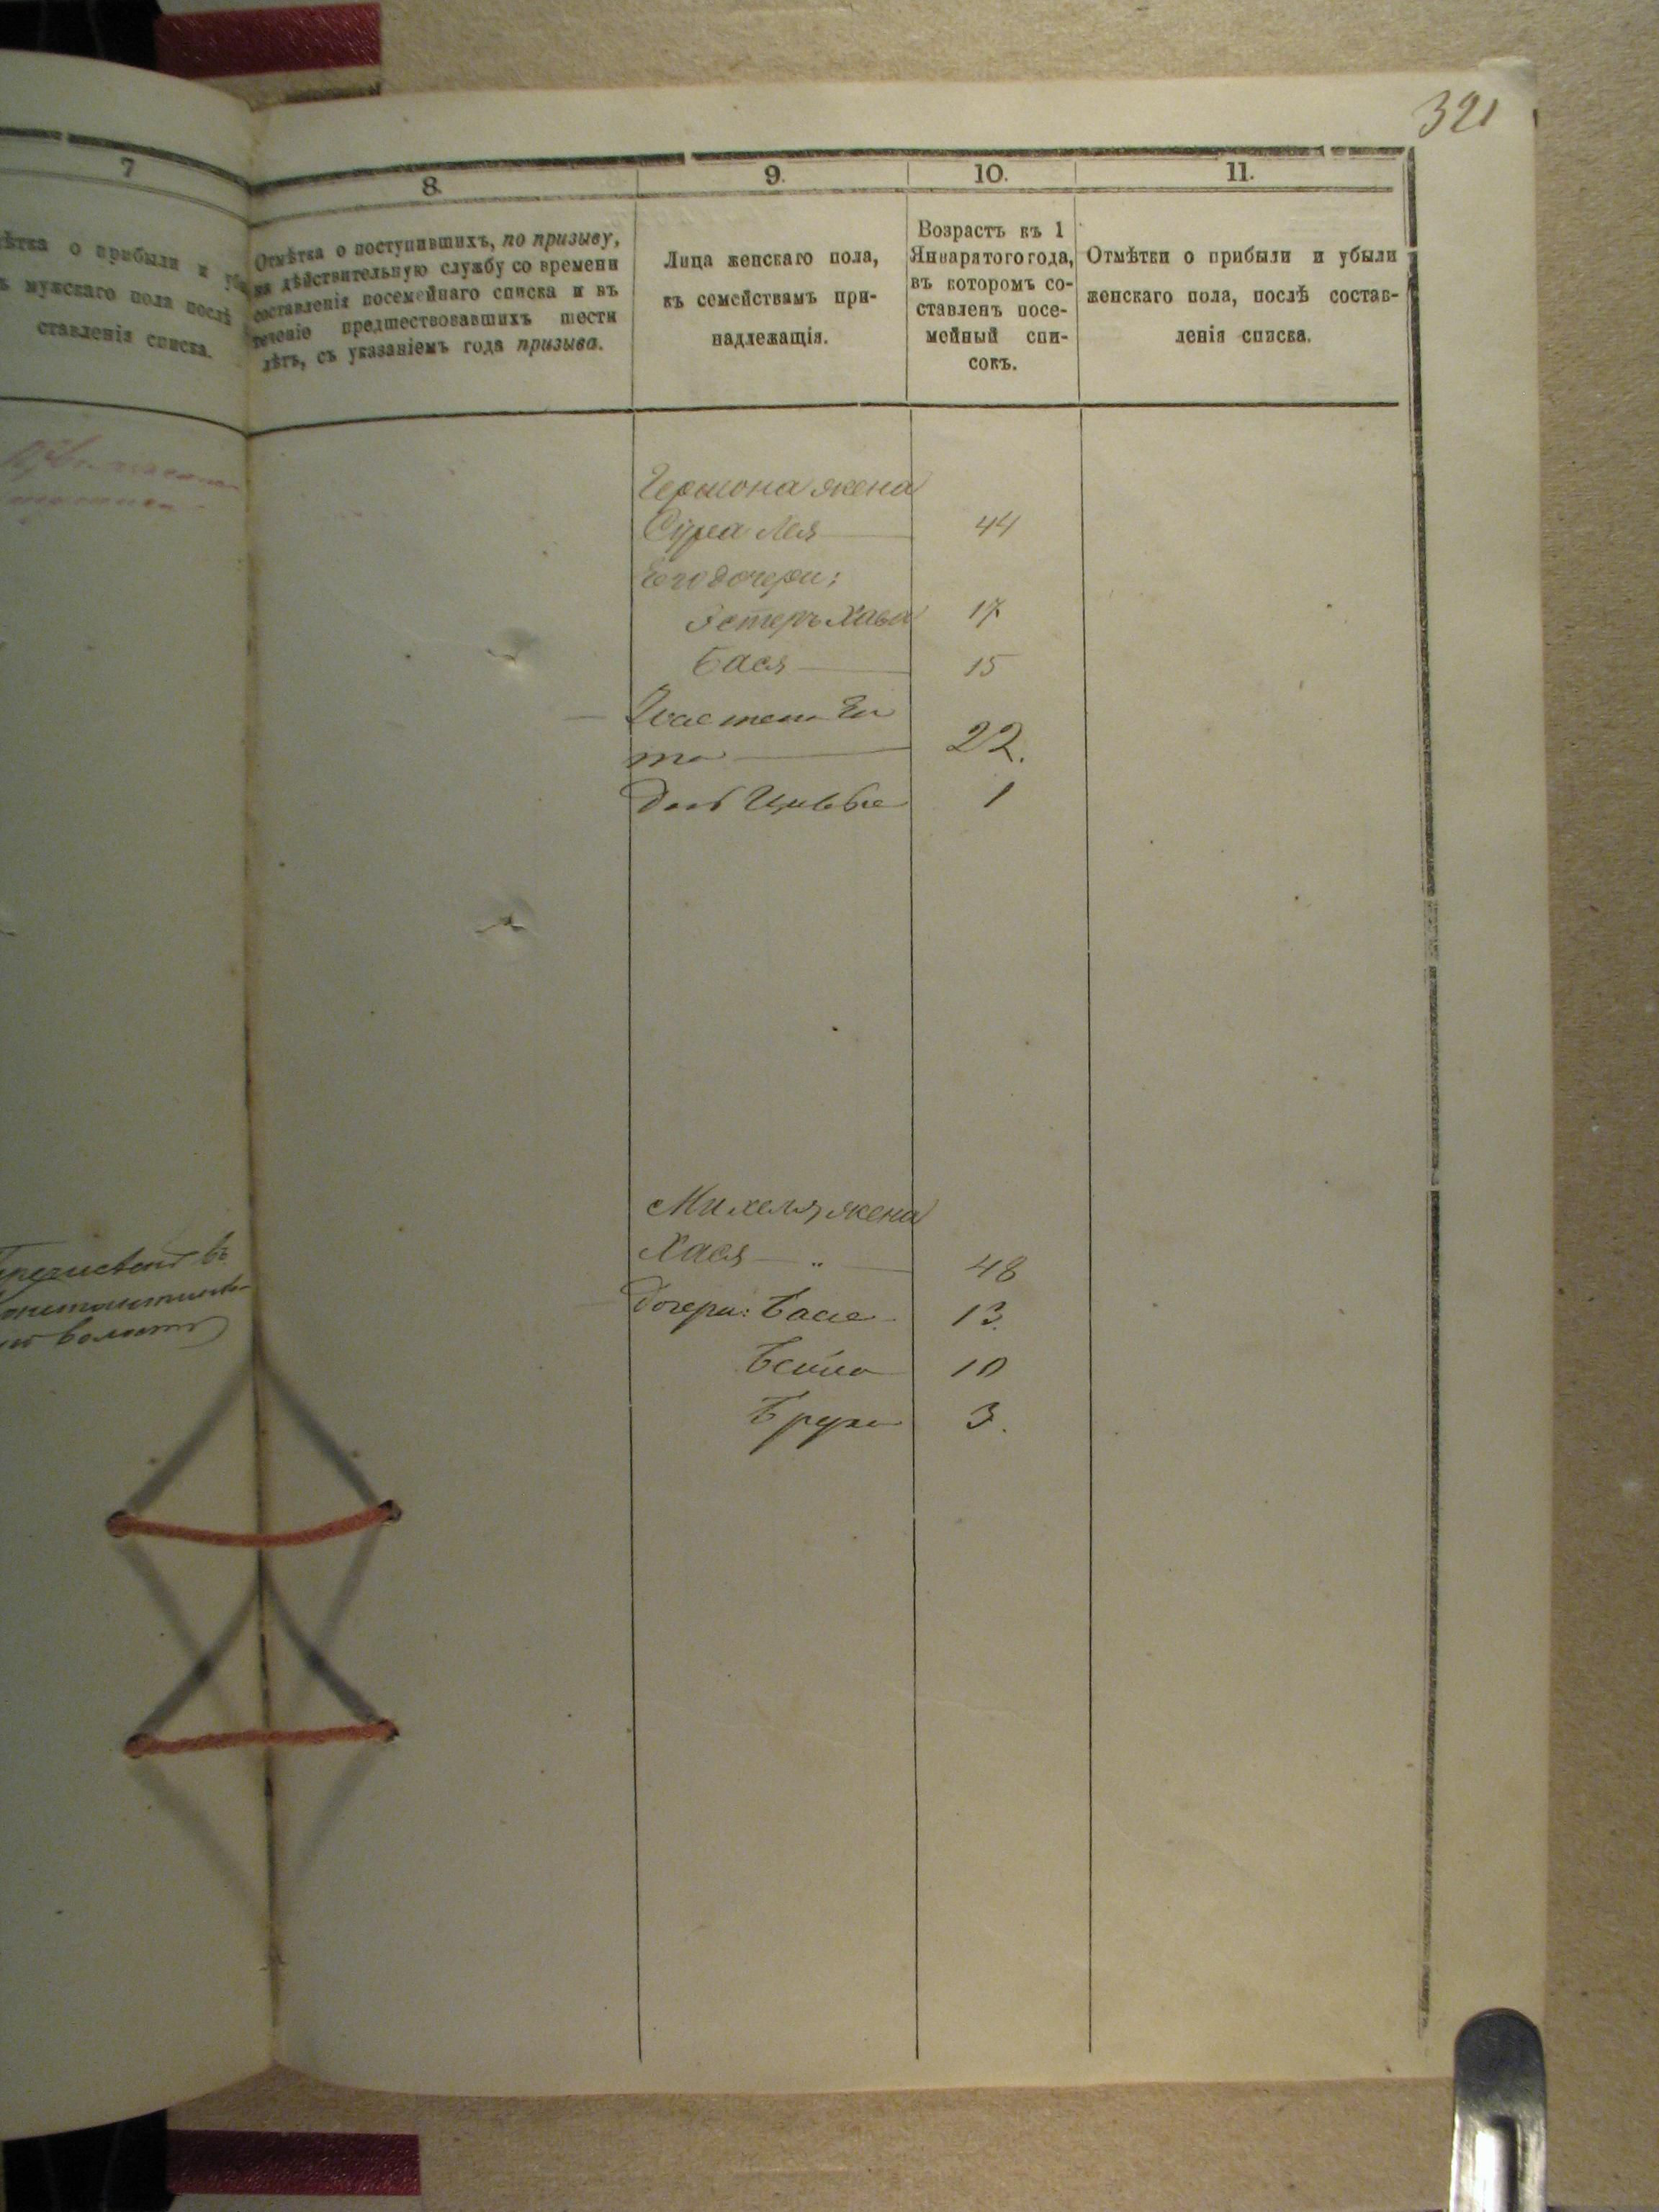 321
7
8.
9.
10.
11.
о прибыли и
мужскаго пола послѣ
ставленія списка.
Отмѣтка о поступившихъ, по призыву,
на дѣйствительную службу со времени
составленія посемейнаго списка и въ
теченіе предшествовавшихъ шести
лѣтъ, съ указаніемъ года призыва.
Лица женскаго пола,
къ семействамъ при-
надлежащія.
Возрастъ къ 1
Января того года,
въ которомъ со-
ставленъ посе-
мейный спи-
сокъ.
Отмѣтки о прибыли и убыли
женскаго пола, послѣ состав-
ленія списка.
Гершона жена
Сура Лея 44
Его дочери:
Эстеръ Хава 17
Бася 15
22.
1
Михеля жена
Хася „ 48
Дочери: Бася 13.
Бейла 10
Бруха 3.